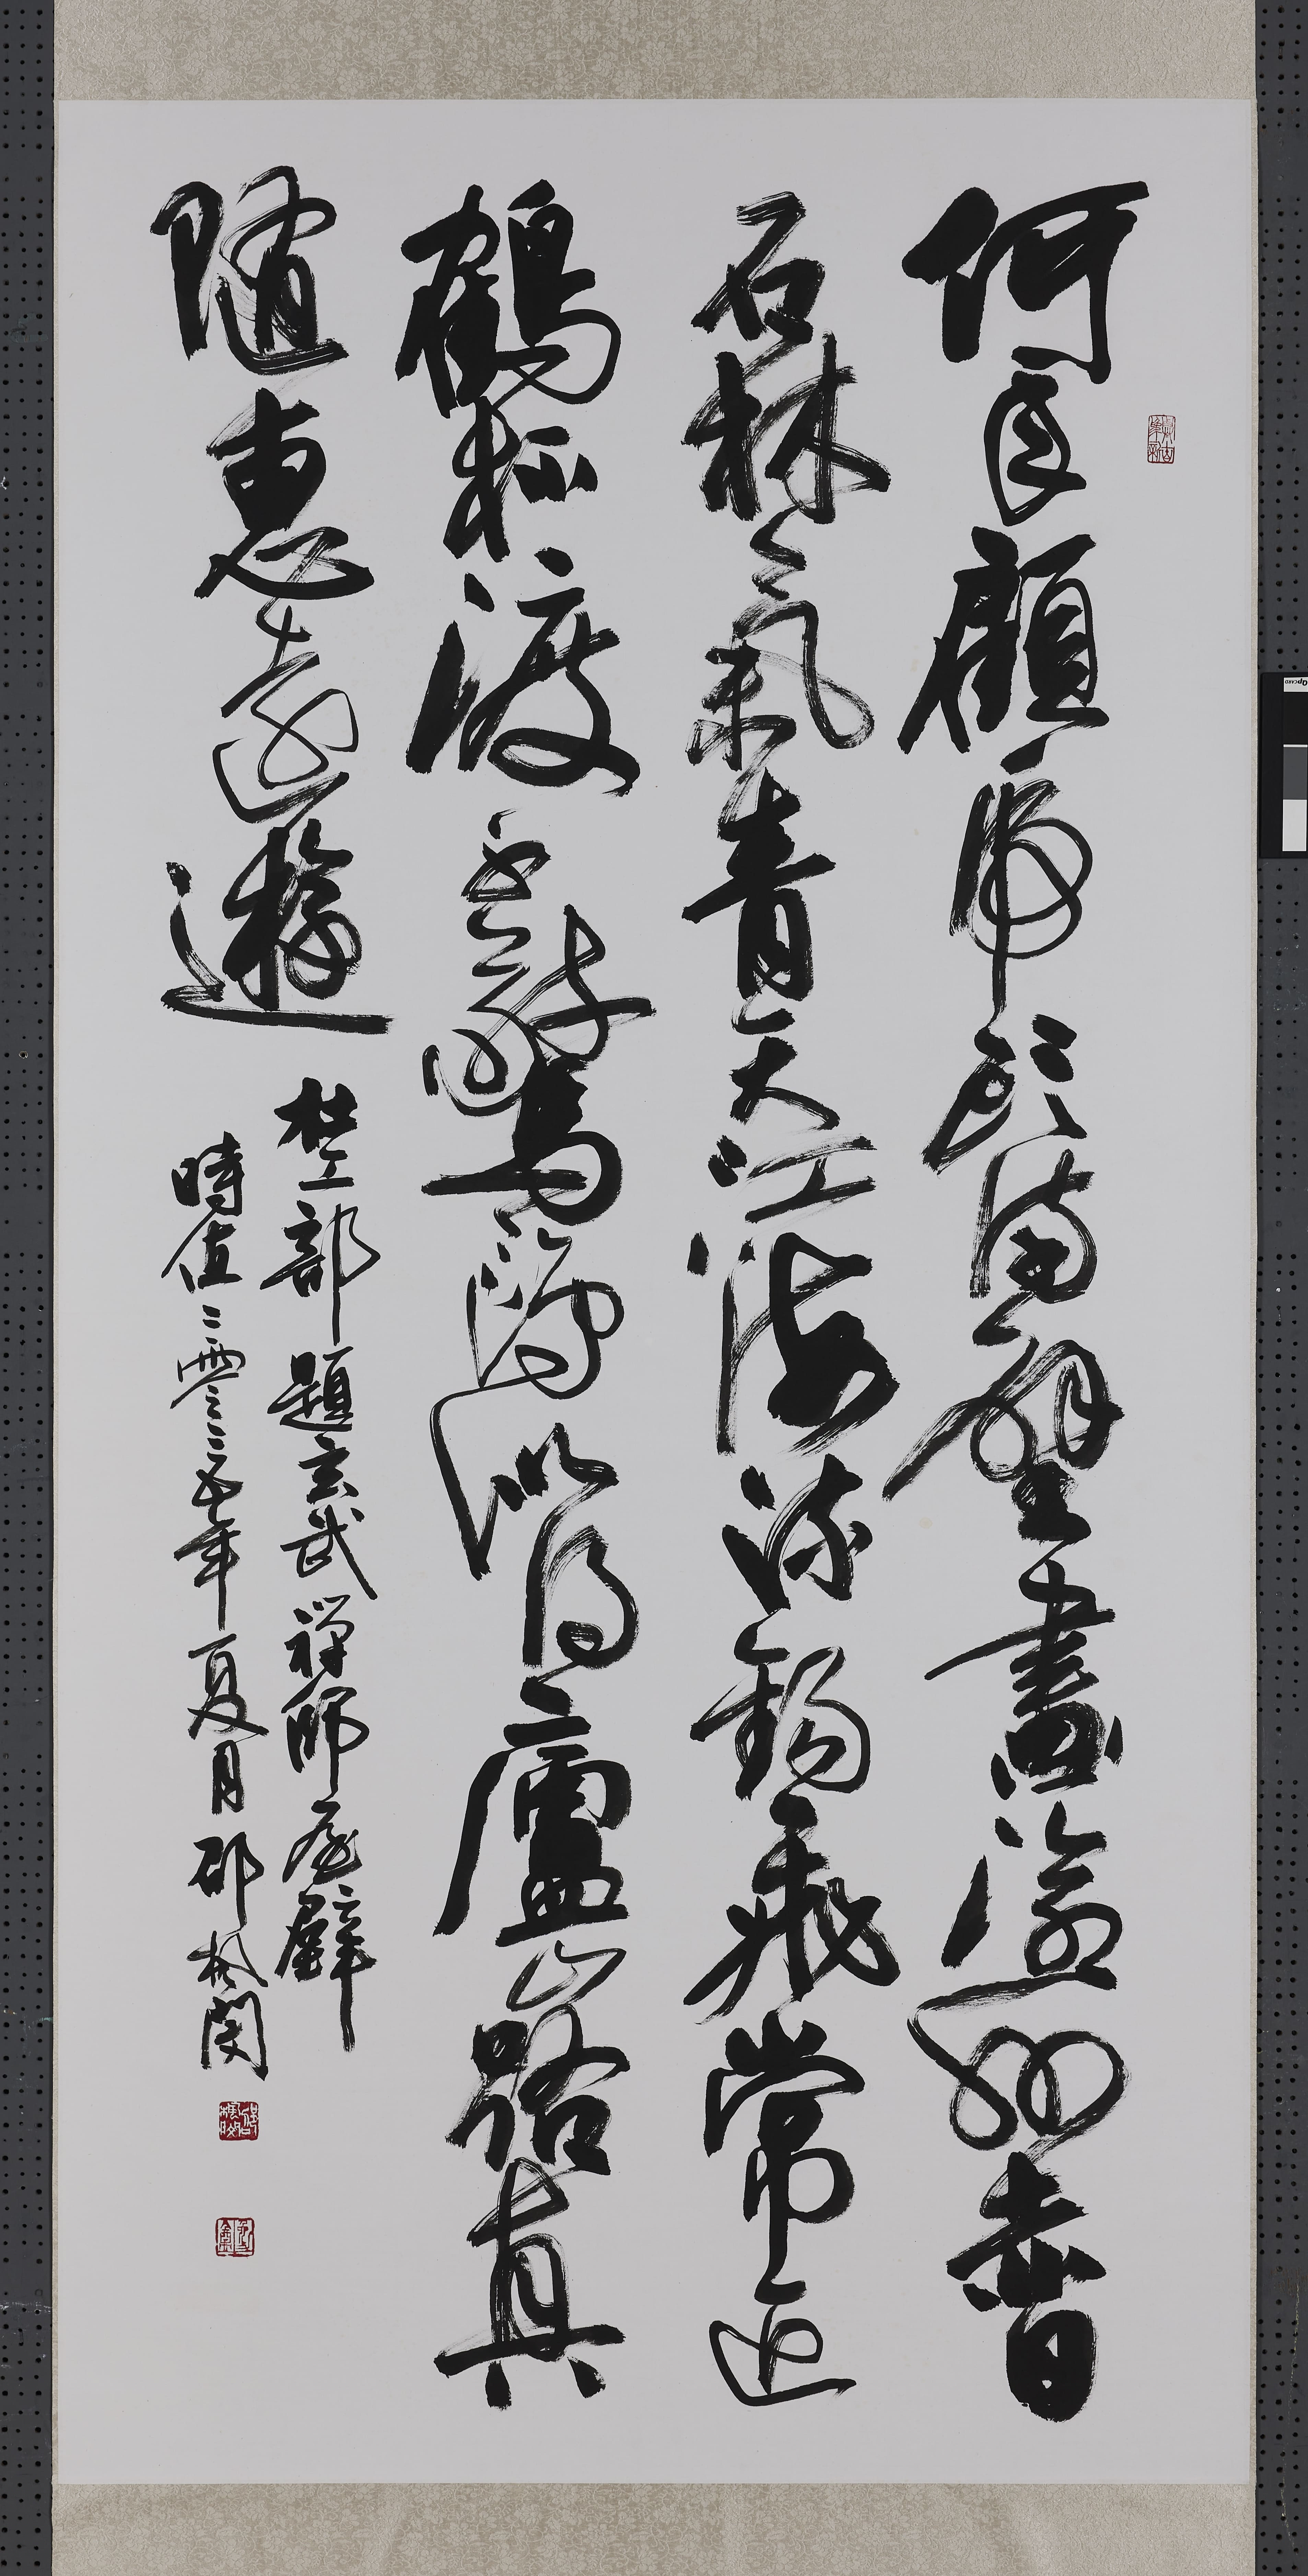 何年顧虎頭滿壁畫滄洲赤日
石林氣青天江海流錫飛常近
鶴桮渡不驚鷗似得廬山路真
隨惠遠遊
杜工部題玄武禪師屋壁
時值二零二五年夏月邵